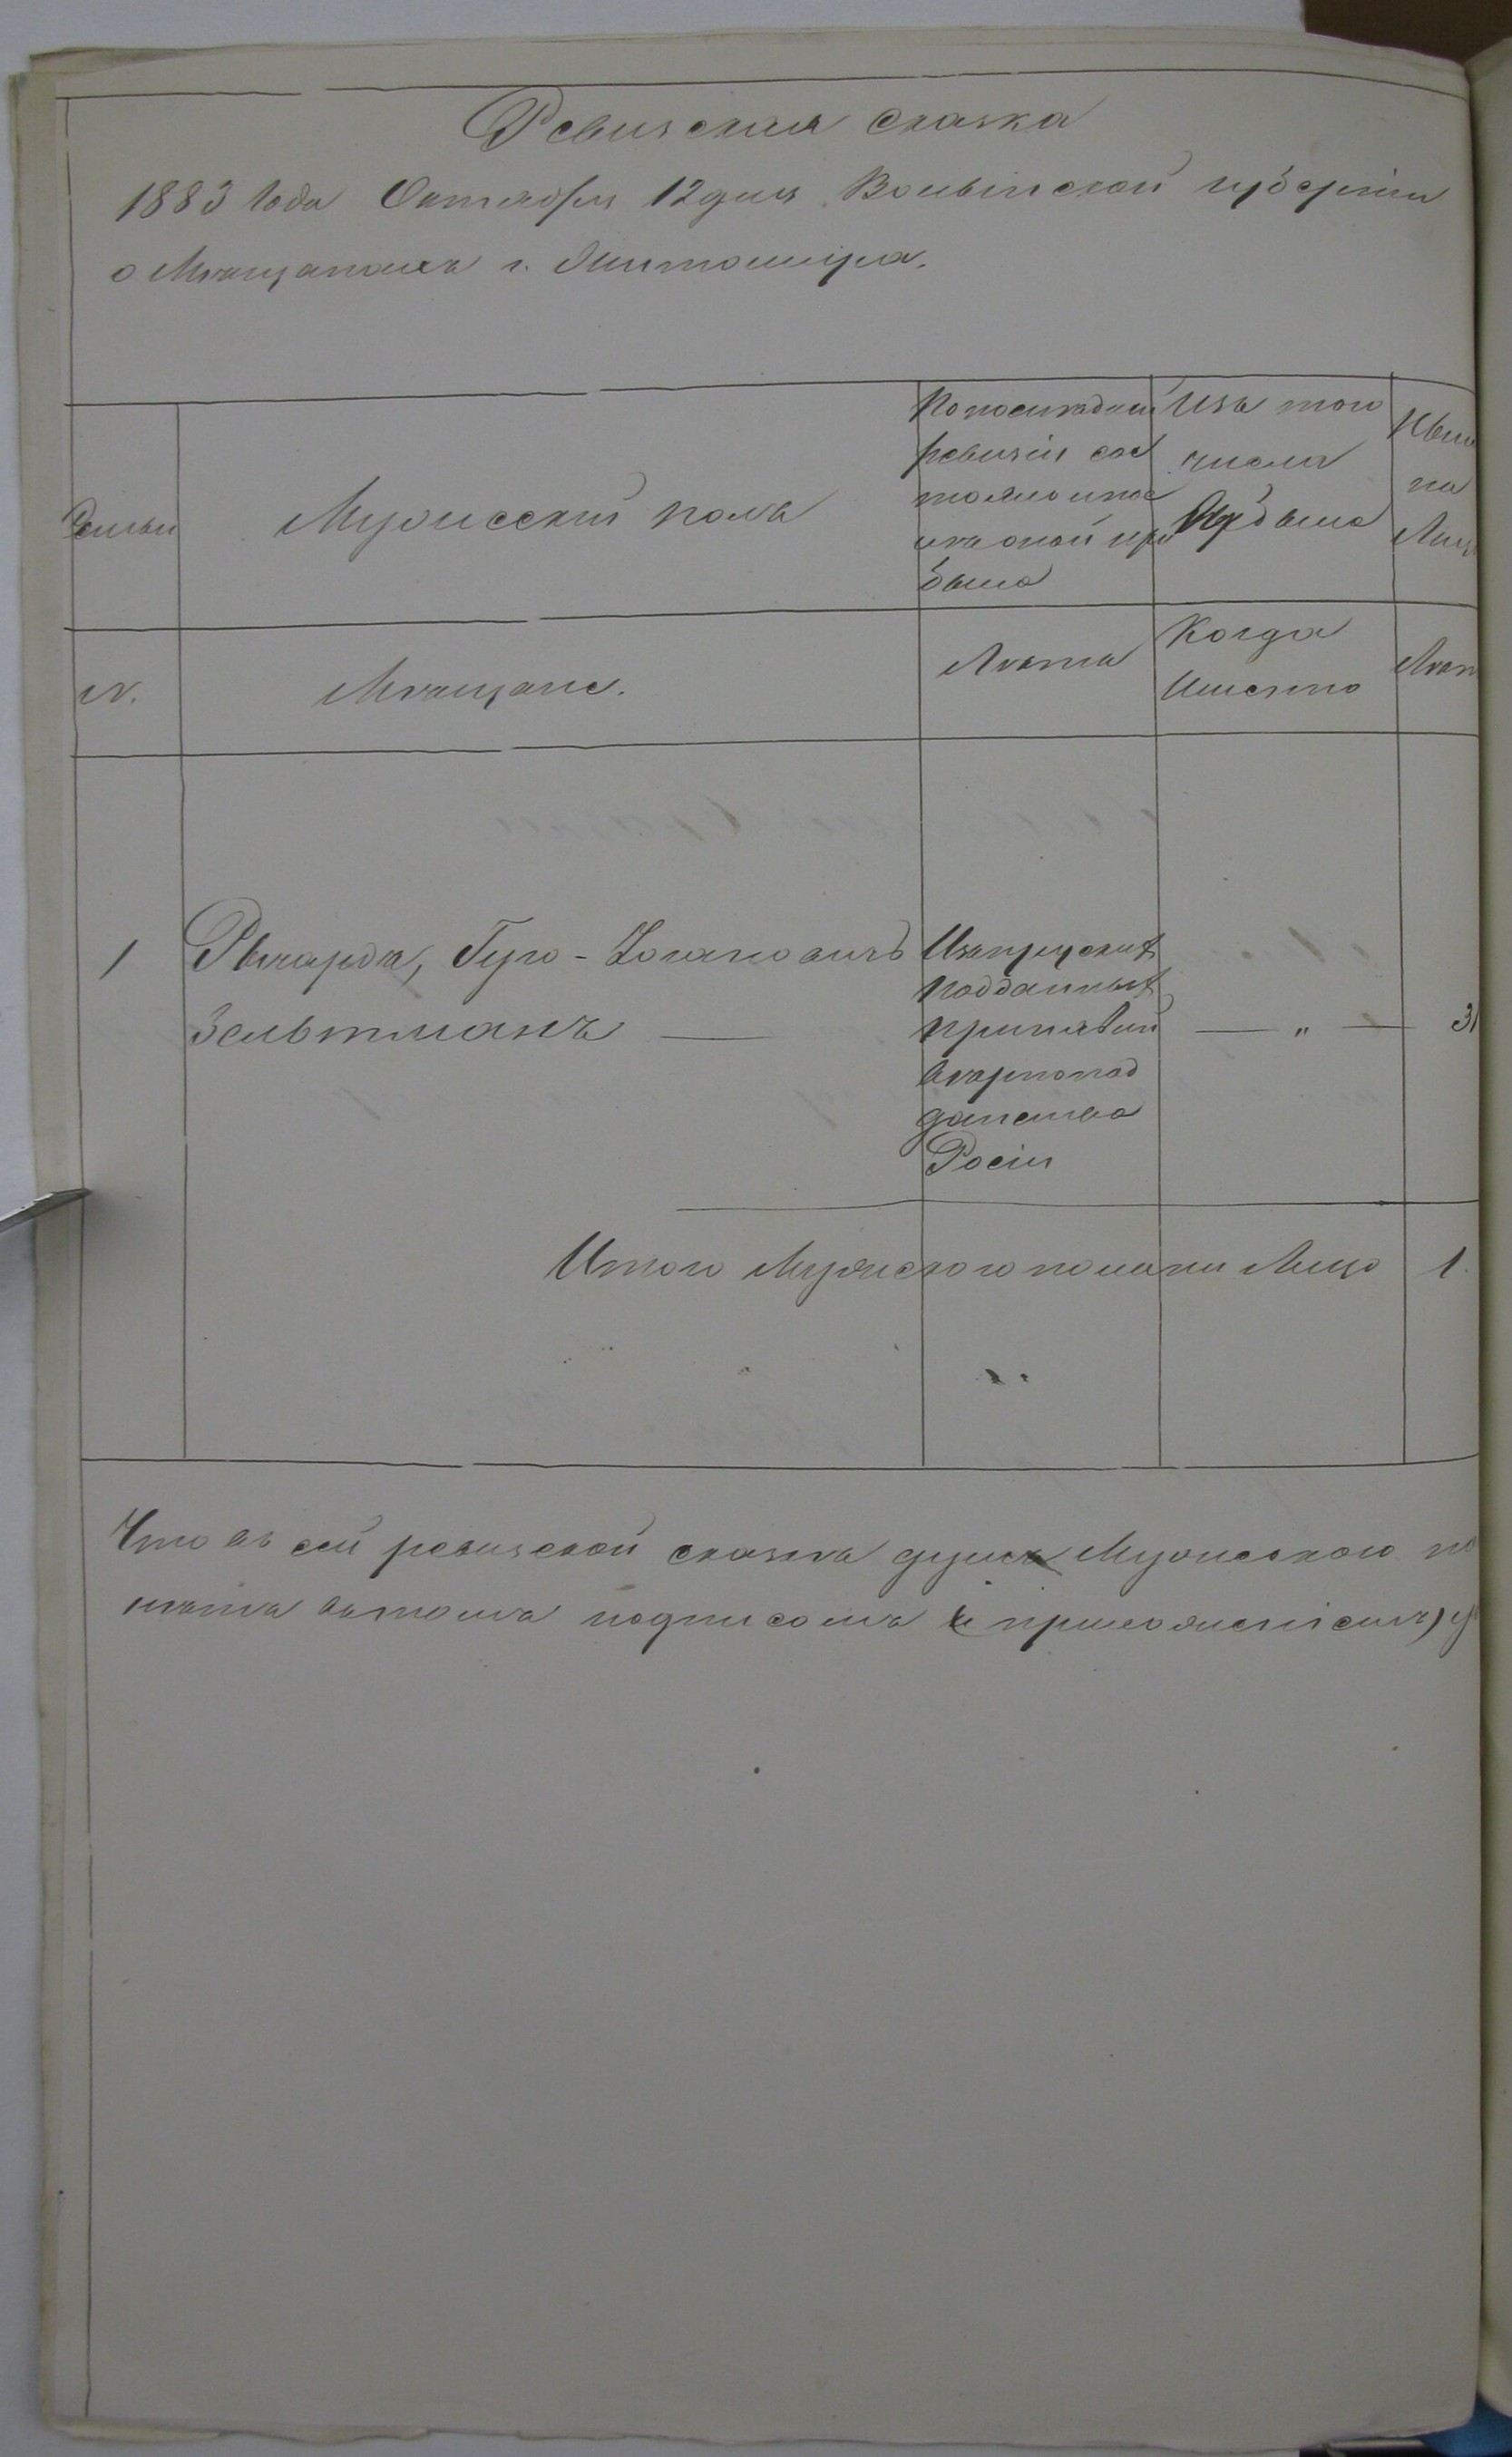 Ревизская сказка
1883 года Октября 12 дня Волынской губерніи
о Мѣщанахъ г. Житоміра.
Семьи
Мужесский полъ
По последней
ревизіи сос
тояло и пос
лѣ оной при
было
Изъ того
числа
выбыло
Нынѣ
на
Лиц
N.
Мѣщане.
Лѣта
Когда
Именно
Лѣт
1
Рычардъ, Гуго-Іогановичъ
Зельтманъ —
Изъ прускихъ
подданныхъ
принявший
вѣрнопод
данство
Росіи
— „ —
31
Итого Мужескаго пола на Лицо 1.
Что въ сей ревизской сказкѣ душъ Мужескаго по
нѣтъ въ томъ подписомъ (с приложеніемъ)